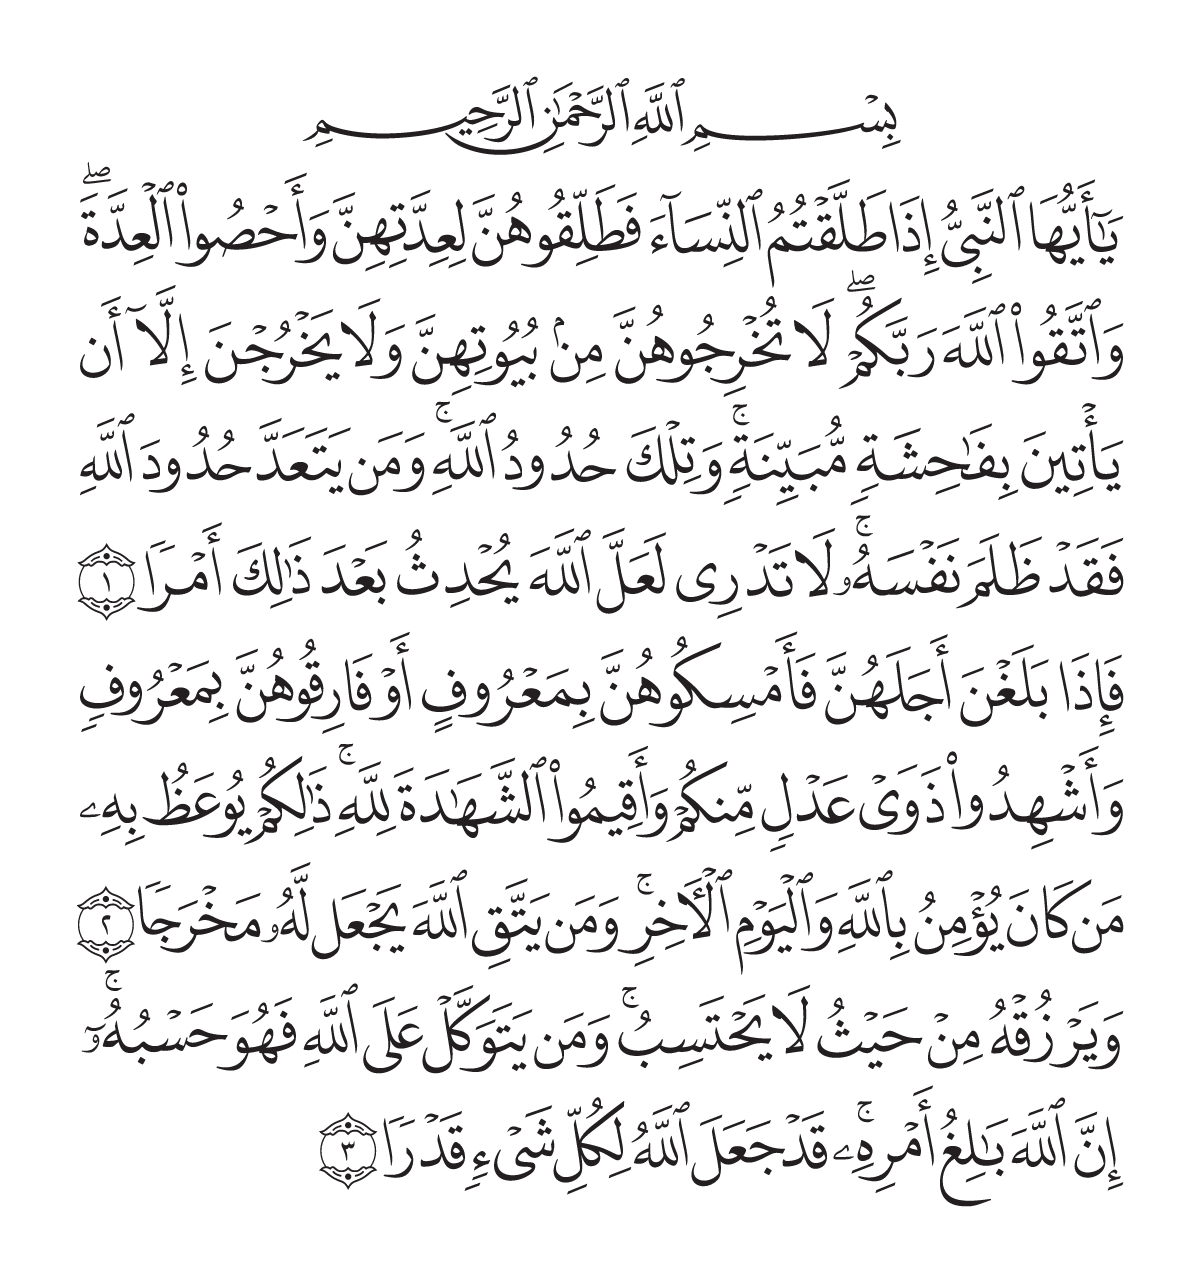 بِسْمِ ٱللَّهِ ٱلرَّحْمَٰنِ ٱلرَّحِيمِ
يَٰٓأَيُّهَا ٱلنَّبِىُّ إِذَا طَلَّقْتُمُ ٱلنِّسَآءَ فَطَلِّقُوهُنَّ لِعِدَّتِهِنَّ وَأَحْصُوا۟ ٱلْعِدَّةَ ۖ
وَٱتَّقُوا۟ ٱللَّهَ رَبَّكُمْ ۖ لَا تُخْرِجُوهُنَّ مِنۢ بُيُوتِهِنَّ وَلَا يَخْرُجْنَ إِلَّآ أَن
يَأْتِينَ بِفَٰحِشَةٍ مُّبَيِّنَةٍ ۚ وَتِلْكَ حُدُودُ ٱللَّهِ ۚ وَمَن يَتَعَدَّ حُدُودَ ٱللَّهِ
فَقَدْ ظَلَمَ نَفْسَهُۥ ۚ لَا تَدْرِى لَعَلَّ ٱللَّهَ يُحْدِثُ بَعْدَ ذَٰلِكَ أَمْرًا ١
فَإِذَا بَلَغْنَ أَجَلَهُنَّ فَأَمْسِكُوهُنَّ بِمَعْرُوفٍ أَوْ فَارِقُوهُنَّ بِمَعْرُوفٍ
وَأَشْهِدُوا۟ ذَوَىْ عَدْلٍ مِّنكُمْ وَأَقِيمُوا۟ ٱلشَّهَٰدَةَ لِلَّهِ ۚ ذَٰلِكُمْ يُوعَظُ بِهِۦ
مَن كَانَ يُؤْمِنُ بِٱللَّهِ وَٱلْيَوْمِ ٱلْءَاخِرِ ۚ وَمَن يَتَّقِ ٱللَّهَ يَجْعَل لَّهُۥ مَخْرَجًا ٢
وَيَرْزُقْهُ مِنْ حَيْثُ لَا يَحْتَسِبُ ۚ وَمَن يَتَوَكَّلْ عَلَى ٱللَّهِ فَهُوَ حَسْبُهُۥٓ ۚ
إِنَّ ٱللَّهَ بَٰلِغُ أَمْرِهِۦ ۚ قَدْ جَعَلَ ٱللَّهُ لِكُلِّ شَىْءٍ قَدْرًا ٣